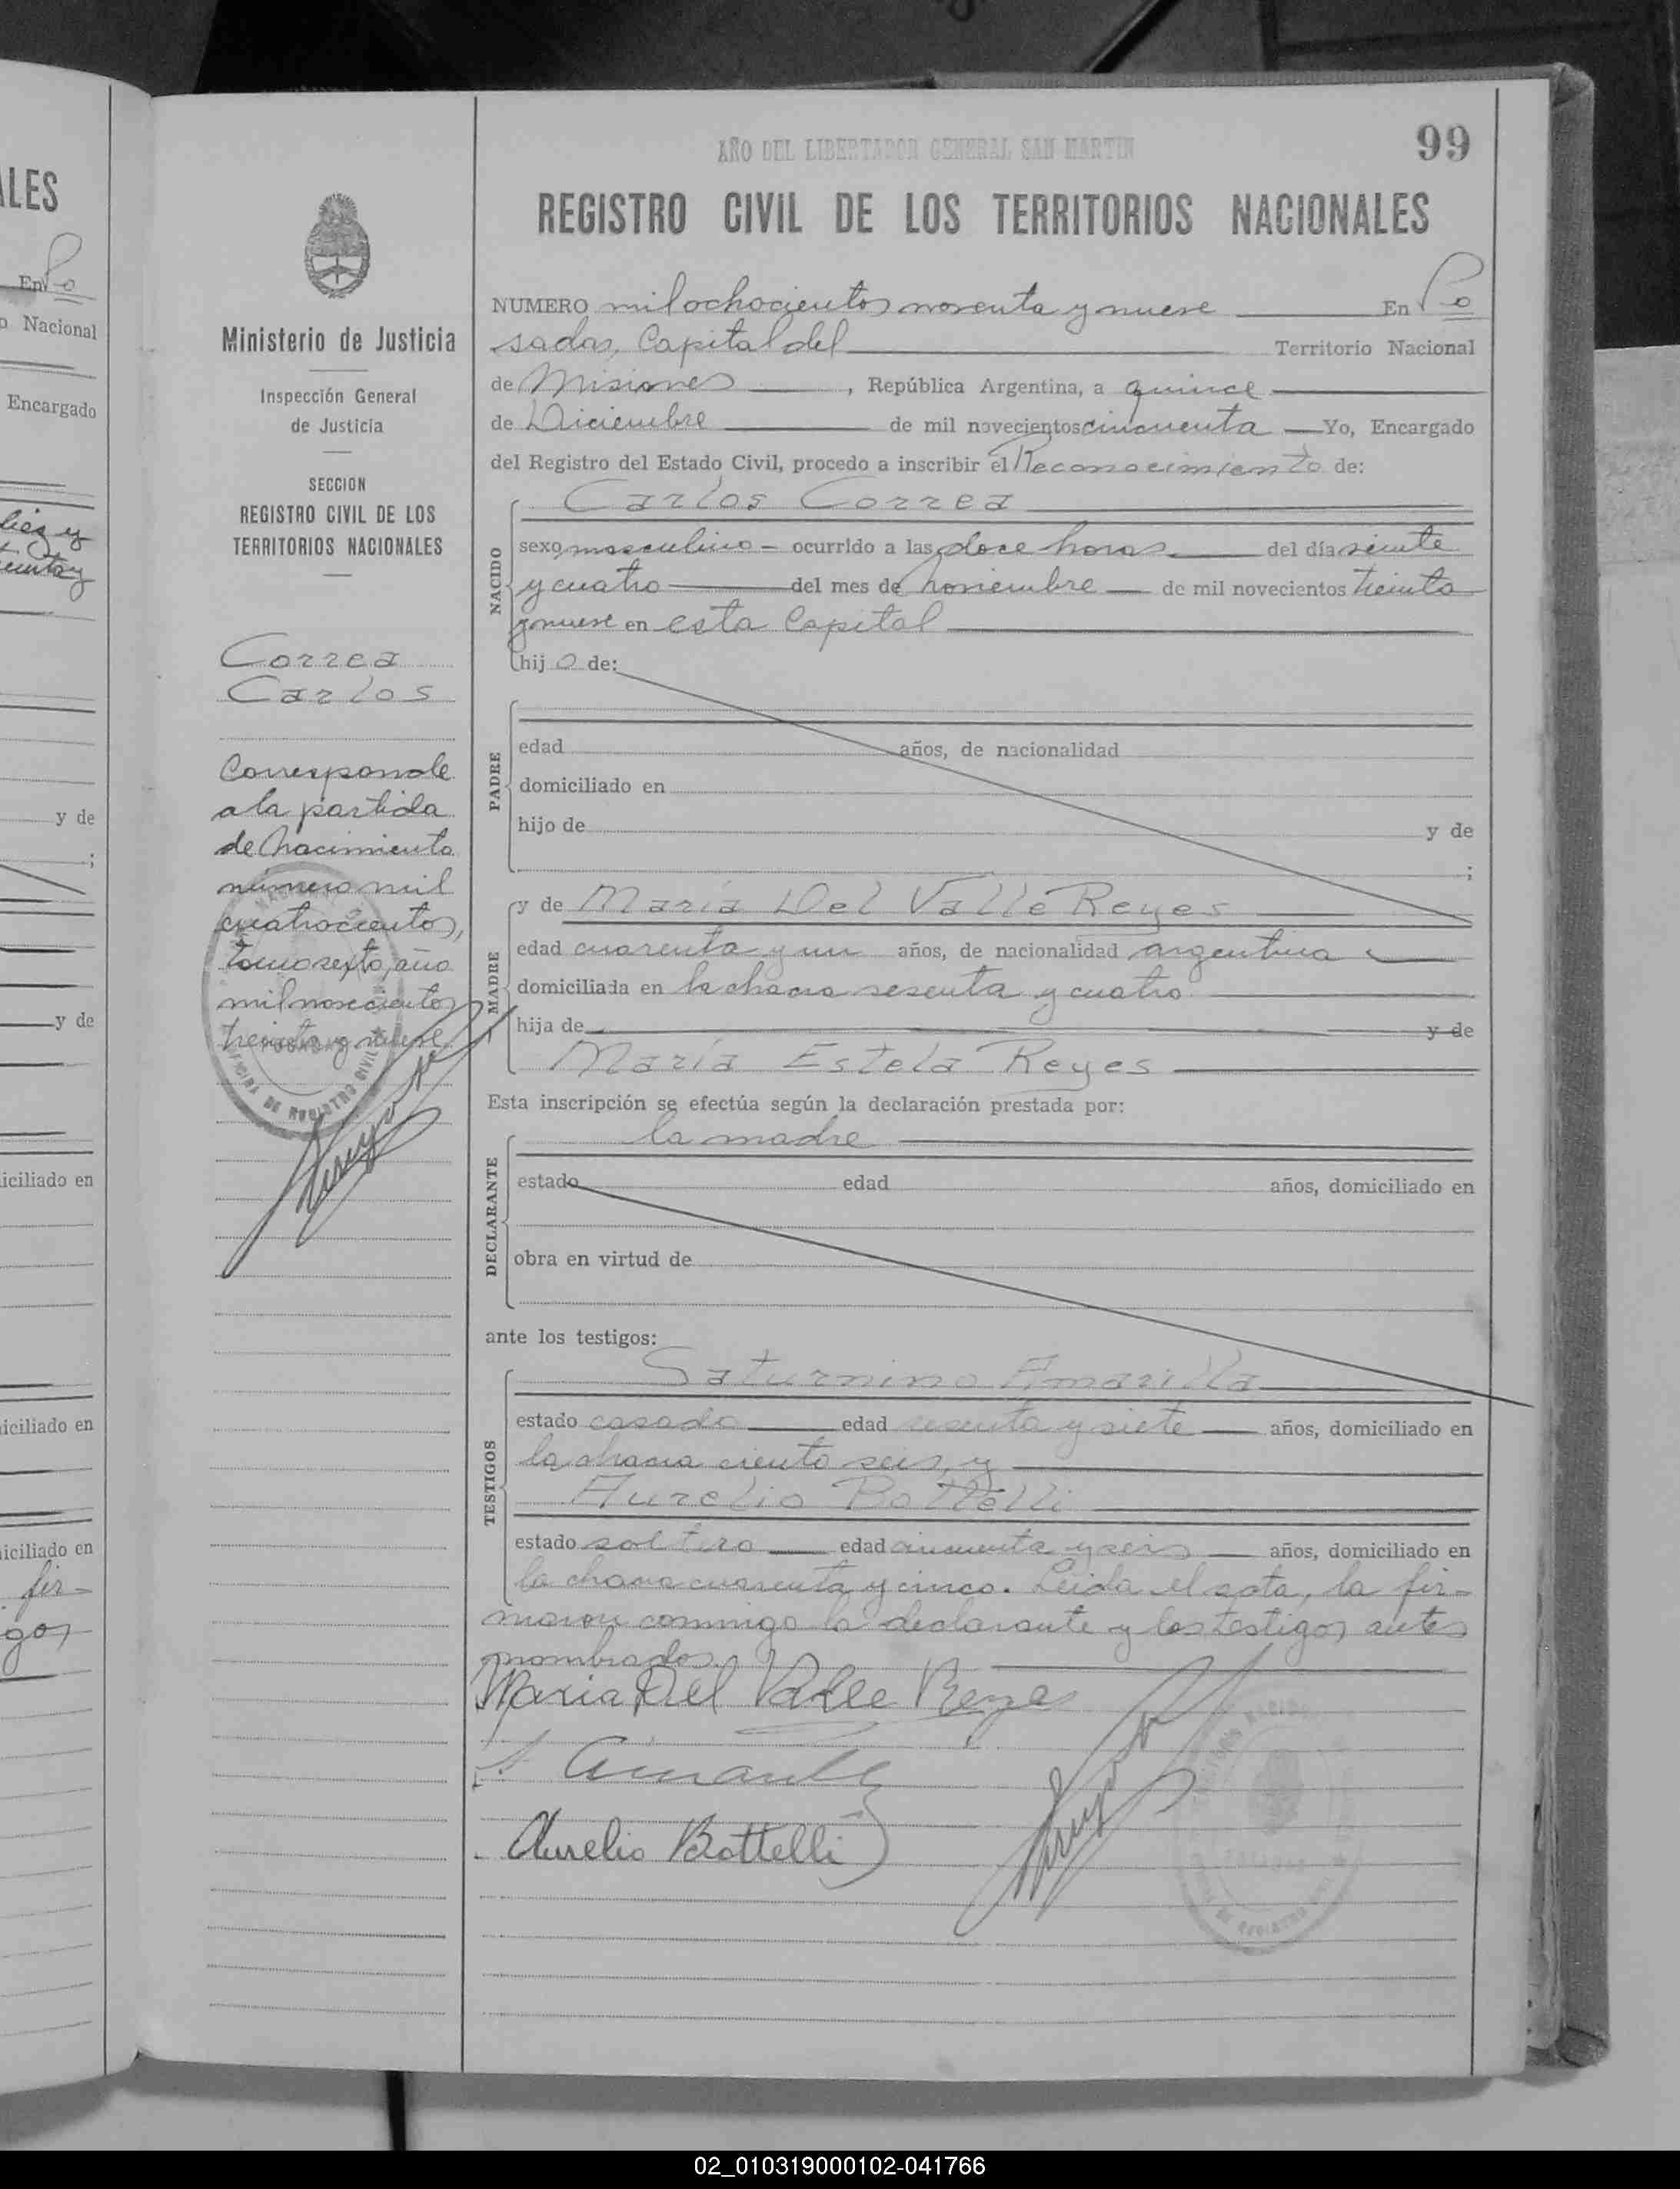 ALES
En Po
o Nacional
Encargado
y de
;
y de
iciliado en
iciliado en
iciliado en
fir-
gos
Ministerio de Justicia
Inspección General
de Justicia
SECCION
REGISTRO CIVIL DE LOS
TERRITORIOS NACIONALES
Correa
Carlos
Corresponde
a la partida
de Nacimiento
número mil
cuatrocientos,
tomo sexto, año
mil novecientos
treinta y nueve.
POSADAS
OFICINA DE REGISTRO CIVIL
AÑO DEL LIBERTADOR GENERAL SAN MARTIN
99
REGISTRO CIVIL DE LOS TERRITORIOS NACIONALES
NUMERO mil ochocientos noventa y nueve En Po
sadas, Capital del Territorio Nacional
de Misiones, República Argentina, a quince
de Diciembre de mil novecientos cincuenta Yo, Encargado
del Registro del Estado Civil, procedo a inscribir el Reconocimiento de:
Carlos Correa
NACIDO
sexo masculino - ocurrido a las doce horas del día veinte
y cuatro del mes de noviembre de mil novecientos treinta
y nueve en esta Capital
hijo de:
PADRE
edad años, de nacionalidad
domiciliado en
hijo de y de
;
MADRE
y de María Del Valle Reyes
edad cuarenta y un años, de nacionalidad argentina
domiciliada en la chacra sesenta y cuatro
hija de y de
María Estela Reyes
Esta inscripción se efectúa según la declaración prestada por:
la madre
DECLARANTE
estado edad años, domiciliado en
obra en virtud de
ante los testigos:
Saturnino Amarilla
TESTIGOS
estado casado edad sesenta y siete años, domiciliado en
la chacra ciento seis, y
Aurelio Bottelli
estado soltero edad cincuenta y seis años, domiciliado en
la chacra cuarenta y cinco. Leida el acta, la fir-
maron conmigo la declarante y los testigos antes
nombrados.
Maria Del Valle Reyes
Aurelio Bottelli
POSADAS
DE REGISTRO CIVIL
02_010319000102-041766